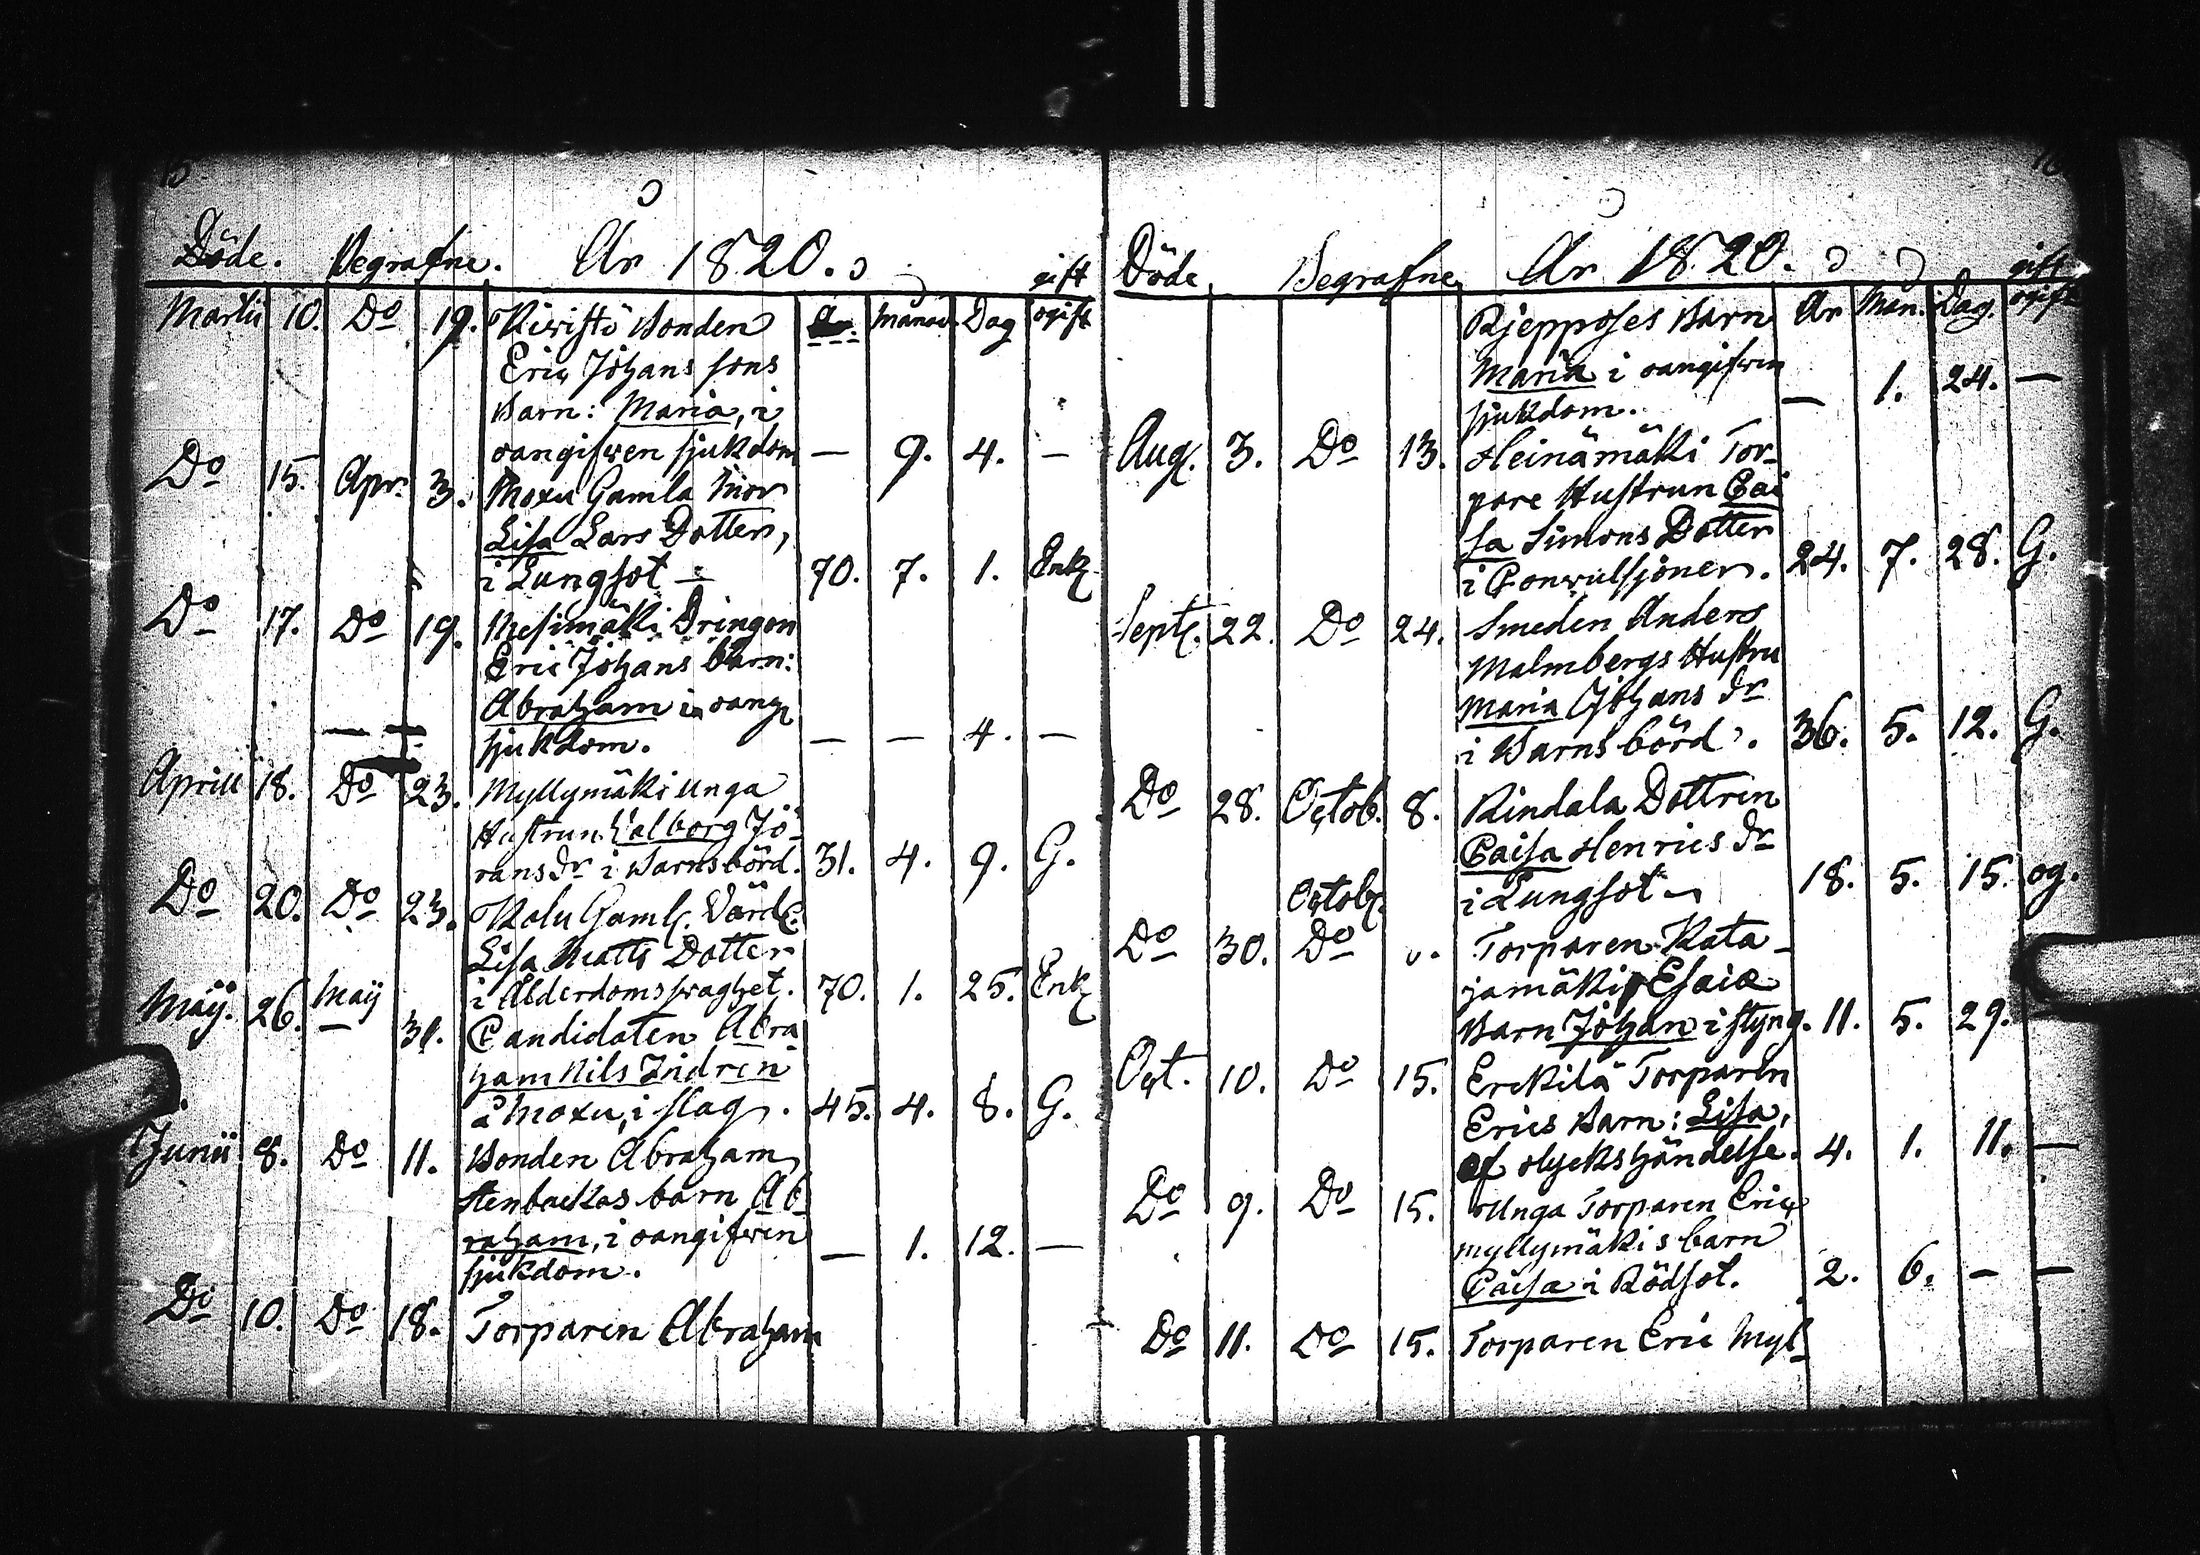 15
Döde. Begrafne. År 1820. gift
Martii 10. Do 19. Kiristö Bonden År. Månad. Dag ogift
Eric Johans sons
Barn: Maria, i
oangifwen sjukdom — 9. 4. —
Do 15. Apr. 3. Moxu Gamla Mor
Lisa Lars Dotter,
i Lungsot — 70. 7. 1. Enk.
Do 17. Do 19. Mesimäki Dringen
Eric Johans barn:
Abraham i oang.
sjukdom. — — 4. —
Aprill 18. Do 23. Myllymäki unga
Hustrun Walborg Jö-
rans dr i Barnsbörd. 31. 4. 9. G.
Do 20. Do 23. Kalu Gaml. Värd.
Lisa Matts Dotter
i Ålderdomswaghet. 70. 1. 25. Enk.
Maji. 26. Maij — 31. Candidaten Abra
ham Nils Indren
å Moxu, i slag. 45. 4. 8. G.
Junii 8. Do 11. Bonden Abraham
Stenbackas barn Ab-
raham, i oangifwen
sjukdom. — 1. 12. —
Do 10. Do 18. Torparen Abraham
Döde Begrafne År 1820. gift
Bjepposes Barn År Mån. Dag. ogift
Maria i oangifwen
sjukdom. — 1. 24. —
Aug. 3. Do 13. Heinämäki Tor-
pare Hustrun Cai
sa Simons Dotter
i Conwulsjoner. 24. 7. 28. G.
Sept. 22. Do 24. Smeden Anders
Malmbergs Hustru
Maria Johans dr
i Barnsbörd. 36. 5. 12. G.
Do 28. Octob. 8. Rindala Dottren
Caisa Henrics dr
i Lungsot 18. 5. 15. og.
Octob.
Do 30. Do ". Torparen Kata-
jamäki Esaiæ
Barn Johan i styng. 11. 5. 29.
Oct. 10. Do 15. Erckilä Torparen
Erics Barn: Lisa,
af olyckshändelse. 4. 1. 11. —
Do 9. Do 15. Unga Torparen Eric
Myllymäkis barn
Caisa i Rödsot. 2. 6. — —
Do 11. Do 15. Torparen Eric Myl-